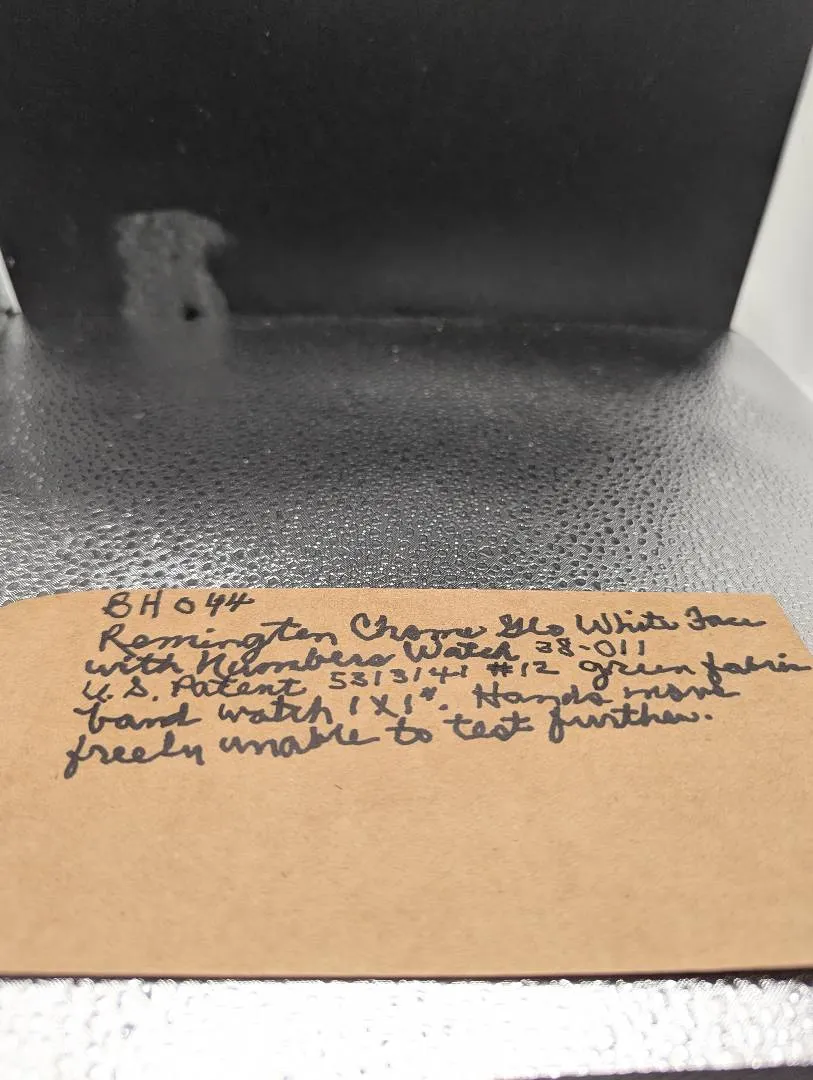 BH 044
Remington Chome Glo White Face
with Numbers Watch 38-011
U.S. Patent 5313141 #12 green fabric
band watch 1X1". Hands move
freely unable to test further.